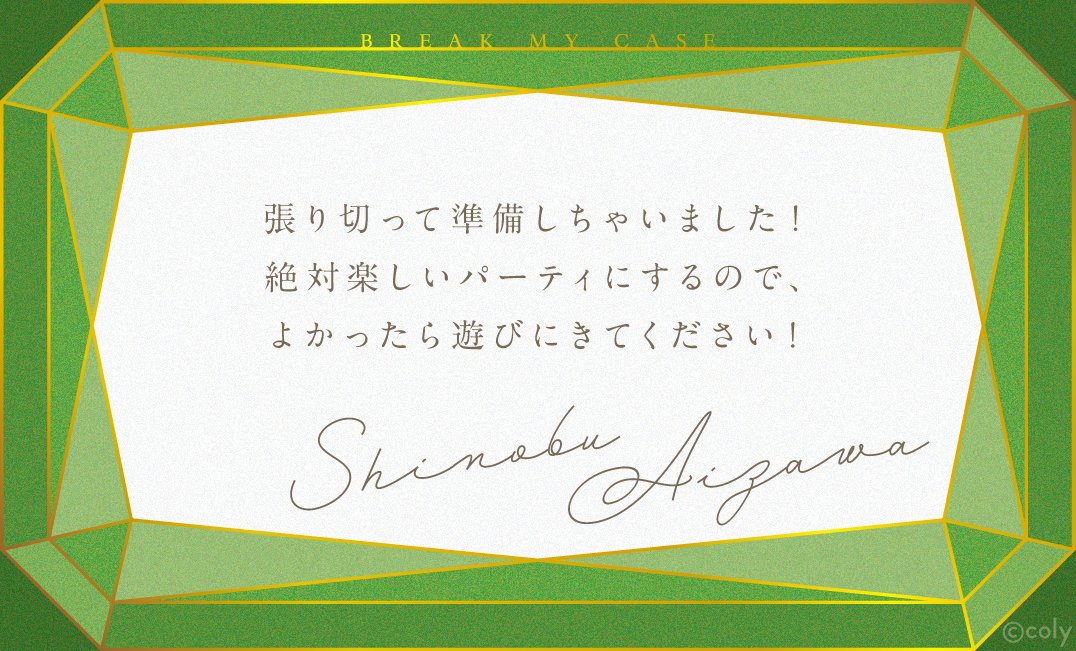 BREAK MY CASE
張り切って準備しちゃいました！
絶対楽しいパーティにするので、
よかったら遊びにきてください！
Shinobu Aizawa
©coly